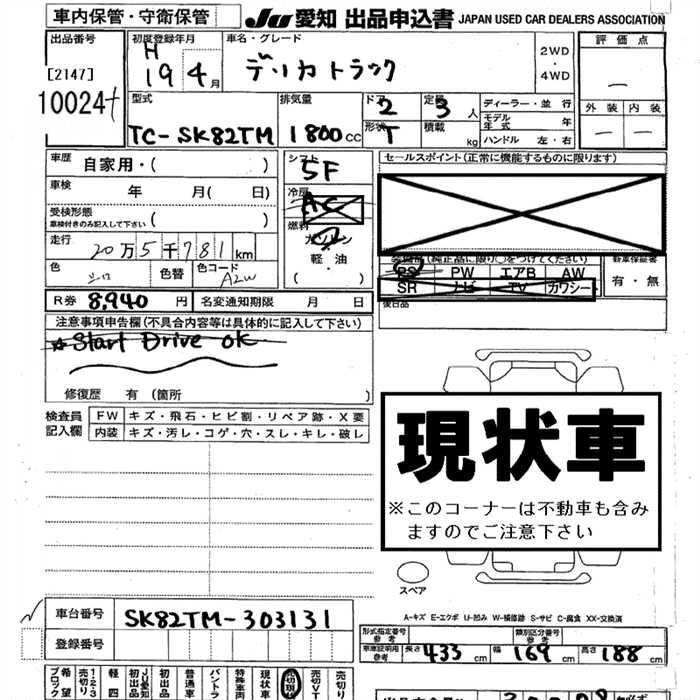 車内保管・守衛保管
JU 愛知 出品申込書 JAPAN USED CAR DEALERS ASSOCIATION
出品番号
[2147]
10024
初度登録年月
H
19 4月
車名・グレード
デリカトラック
2WD
・
4WD
評価点
—
外装 内装
— —
型式
TC-SK82TM
排気量
1800CC
ドア
2
形状
T
定員
3人
積載
kg
ディーラー・並行
モデル年式 年
ハンドル 左・右
車歴 自家用・( )
車検 年 月( 日)
受検形態
車検付きのみ記入して下さい ( )
走行 20万5千781km
色 シロ 色替 色コード A2W
R券 8,940円 名変通知期限 月 日
シフト
5F
冷房
AC
燃料
ガソリン
軽油
( )
セールスポイント(正常に機能するものに限ります)
装備品(純正品に限り○をつけてください)
PS PW エアB AW
SR ナビ TV カワシート
後日品
新車保証書
有・無
注意事項申告欄(不具合内容等は具体的に記入して下さい)
☆Start Drive OK
修復歴 有(箇所 )
検査員記入欄
FW キズ・飛石・ヒビ割・リペア跡・X要
内装 キズ・汚レ・コゲ・穴・スレ・キレ・破レ
現状車
※このコーナーは不動車も含み
ますのでご注意下さい
スペア
A-キズ E-エクボ U-凹み W-補修跡 S-サビ C-腐食 XX-交換済
車台番号 SK82TM-303131
登録番号
形式指定番号
参考
類別区分番号
参考
車庫証明用
参考
長さ 433cm 幅 169cm 高さ 188cm
希望ブロック
売切り1・2・3
軽四
JU愛知初出品
初出品
普通車
バントラ
特殊車両
現状車
売切VT
売切り